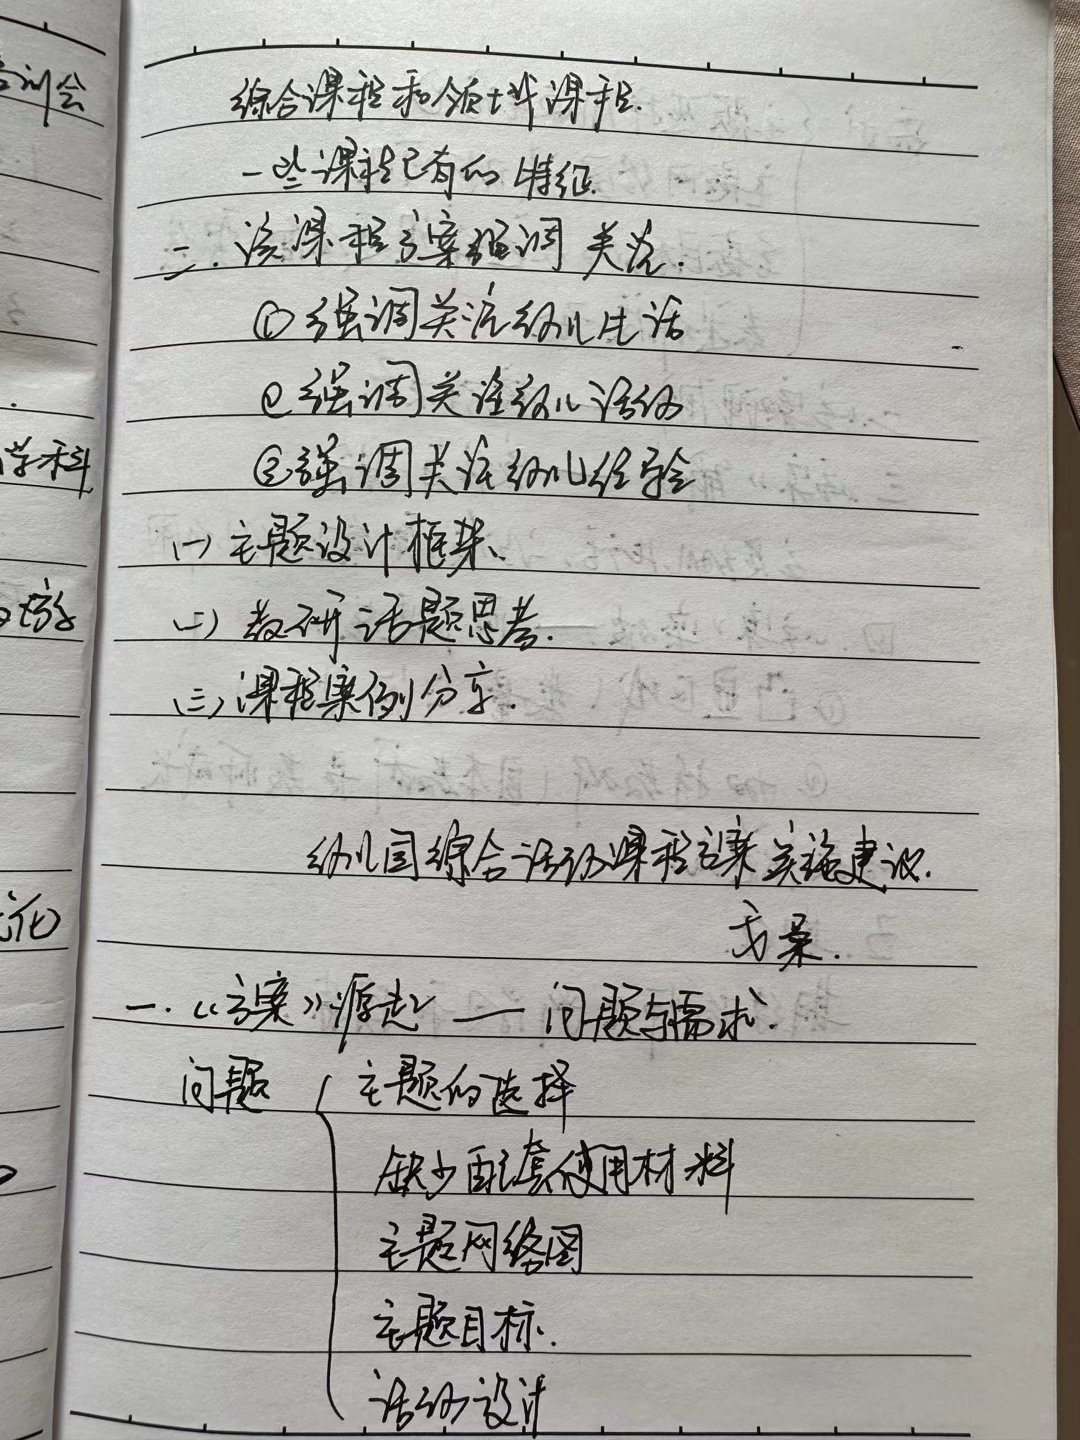 综合课程和领域课程.
一些课程已有的特征.
二. 该课程方案强调关注.
① 强调关注幼儿生活
② 强调关注幼儿活动
③ 强调关注幼儿经验
(一) 主题设计框架、
(二) 教研话题思考.
(三) 课程案例分享.
幼儿园综合活动课程方案实施建议.
一.《方案》源起——问题与需求.
问题 { 主题的选择
缺少配套使用材料
主题网络图
主题目标.
活动设计
训会
学科